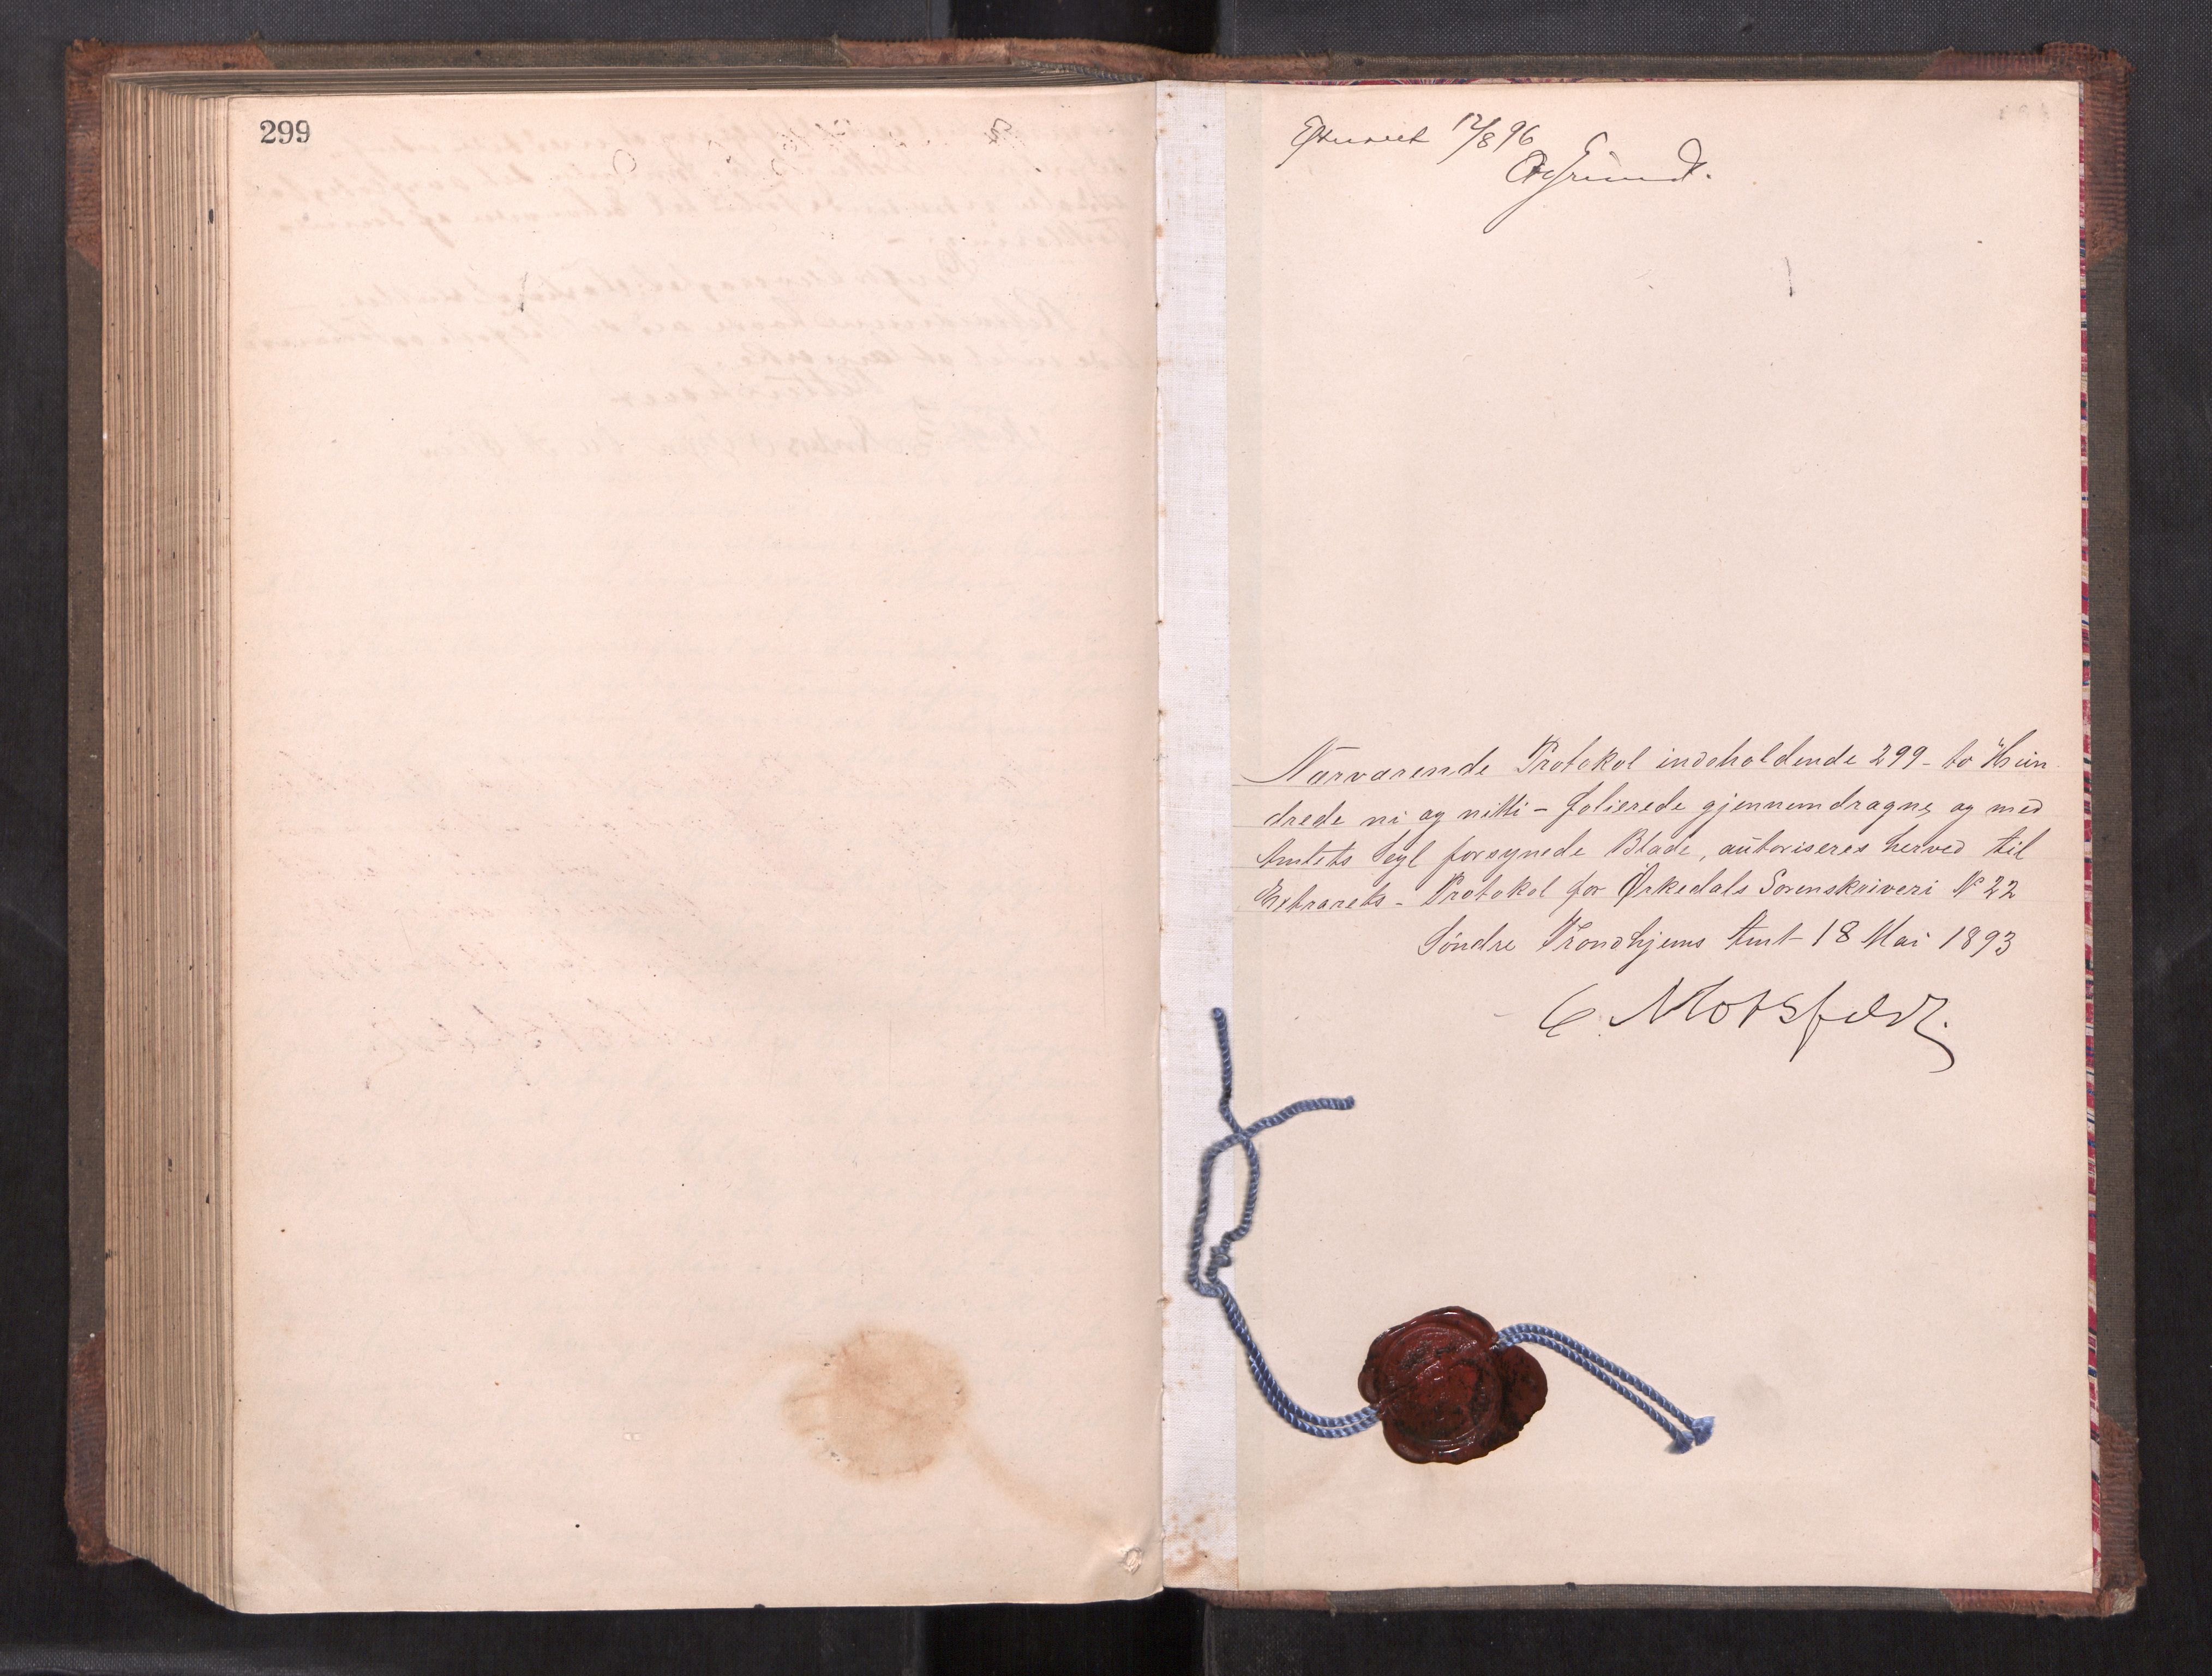 299
12/8 96
Nærværende Protokol indeholdende 299 - to Hun
drede ni og nitti - folierede gjennemdragne og med
Amtets Segl forsynede Blade, autoriseres herved til
Extrarets - Protokol for Ørkedals Sorenskriveri № 22
Søndre Trondhjems Amt 18 Mai 1893
C. Motzfeldt.